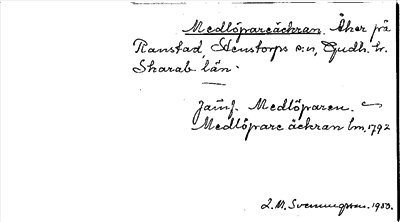 Medlöpareåckran. Åker på
Ranstad Stenstorps s:n, Gudh. hr.
Skarab. län.
Jämf. Medlöparen.
Medlöpare åckran lm. 1792
L. M. Svenungsson. 1933.